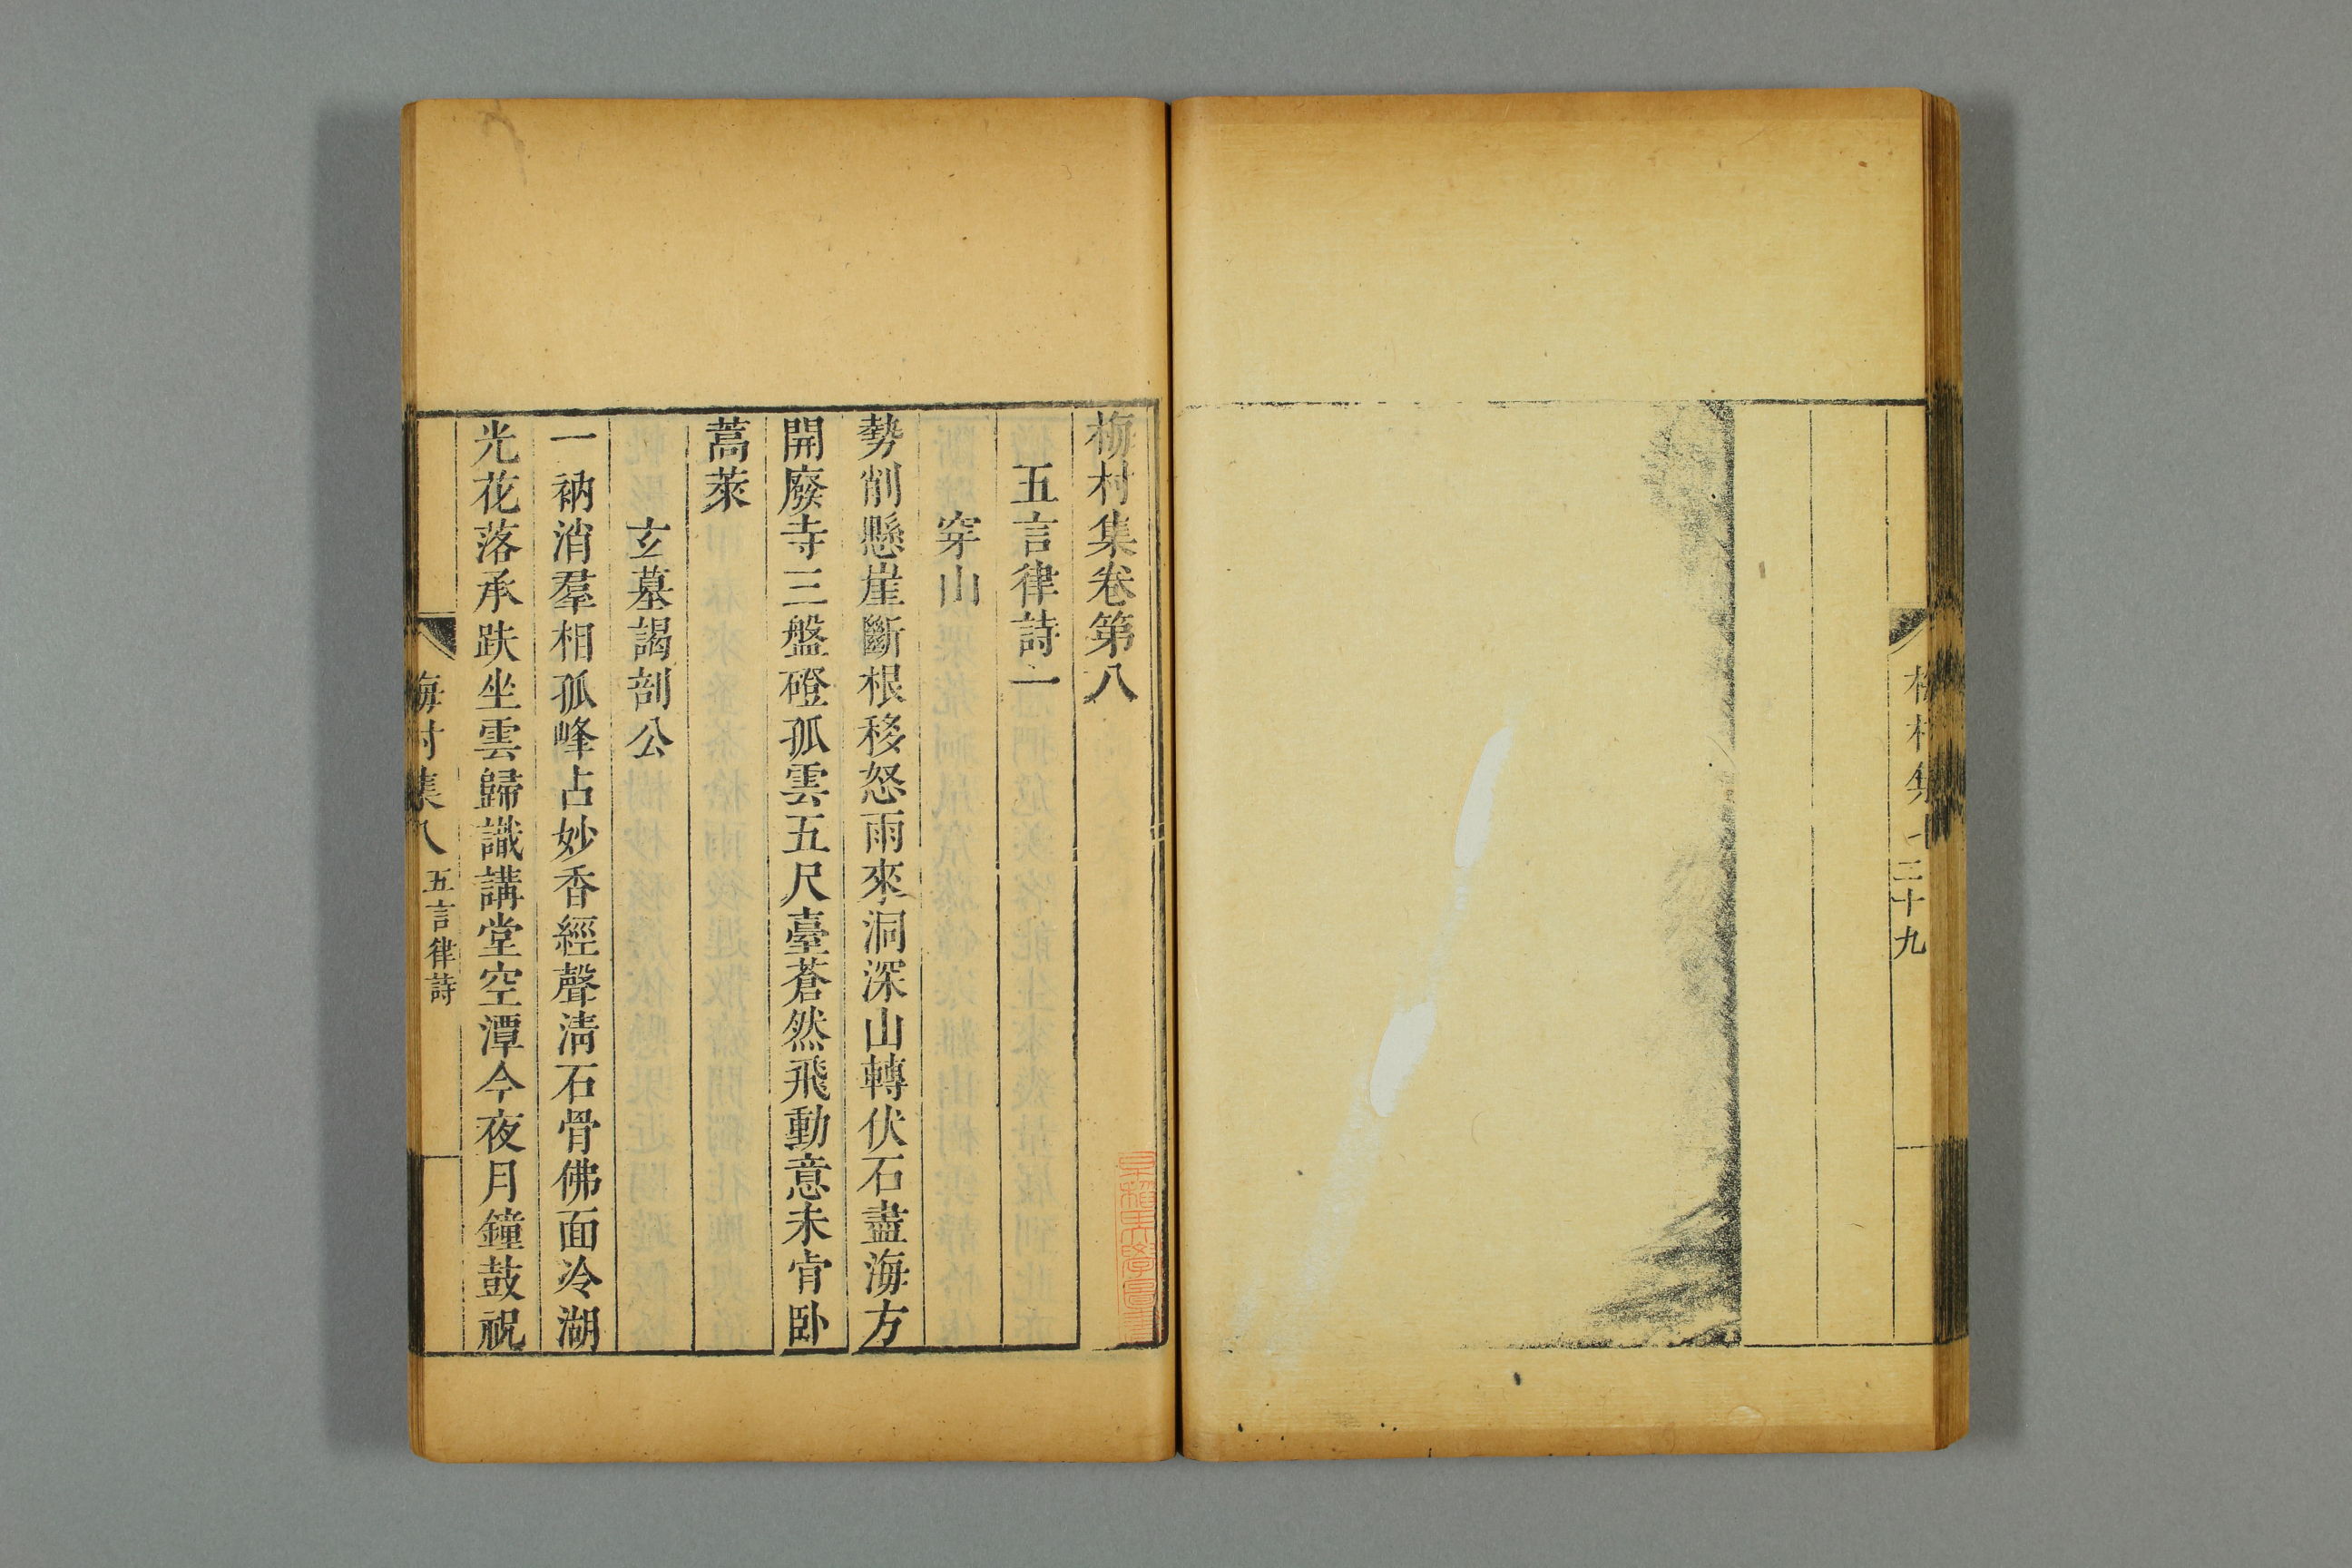 梅村集
三十九
梅村集卷第八
五言律詩一
穿山
勢削懸崖斷根移怒雨來洞深山轉伏石盡海方
開廢寺三盤磴孤雲五尺臺蒼然飛動意未肯卧
蒿萊
玄墓謁剖公
一衲消羣相孤峰占妙香經聲清石骨佛面冷湖
光花落承趺坐雲歸識講堂空潭今夜月鐘鼓祝
梅村集八
五言律詩
早稲田大學圖書